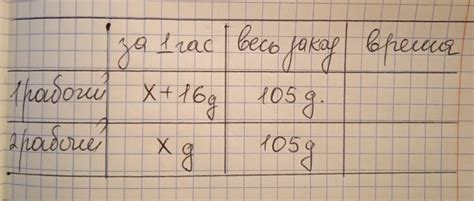 за 1 час весь заказ время
1 рабочий x+16д 105д.
2 рабочий x д 105д